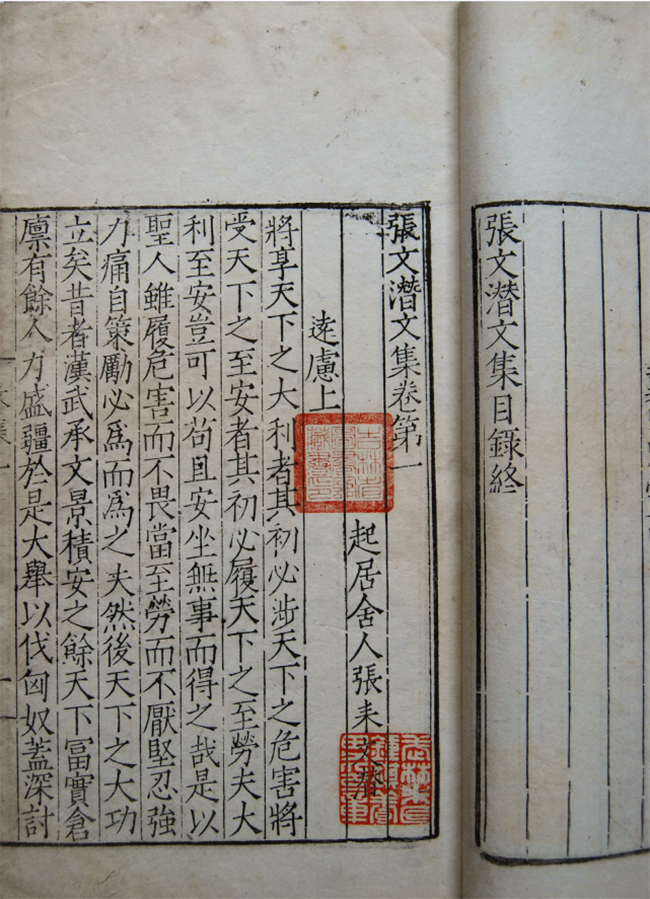 張文潛文集目錄終
張文潛文集卷第一
起居舍人張耒文潛
逺慮上
將享天下之大利者其初必涉天下之危害將
受天下之至安者其初必履天下之至勞夫大
利至安豈可以苟且安坐無事而得之哉是以
聖人雖履危害而不畏當至勞而不厭堅忍強
力痛自策勵必爲而爲之夫然後天下之大功
立矣昔者漢武承文景積安之餘天下富實倉
廪有餘人力盛疆於是大舉以伐匈奴蓋深討